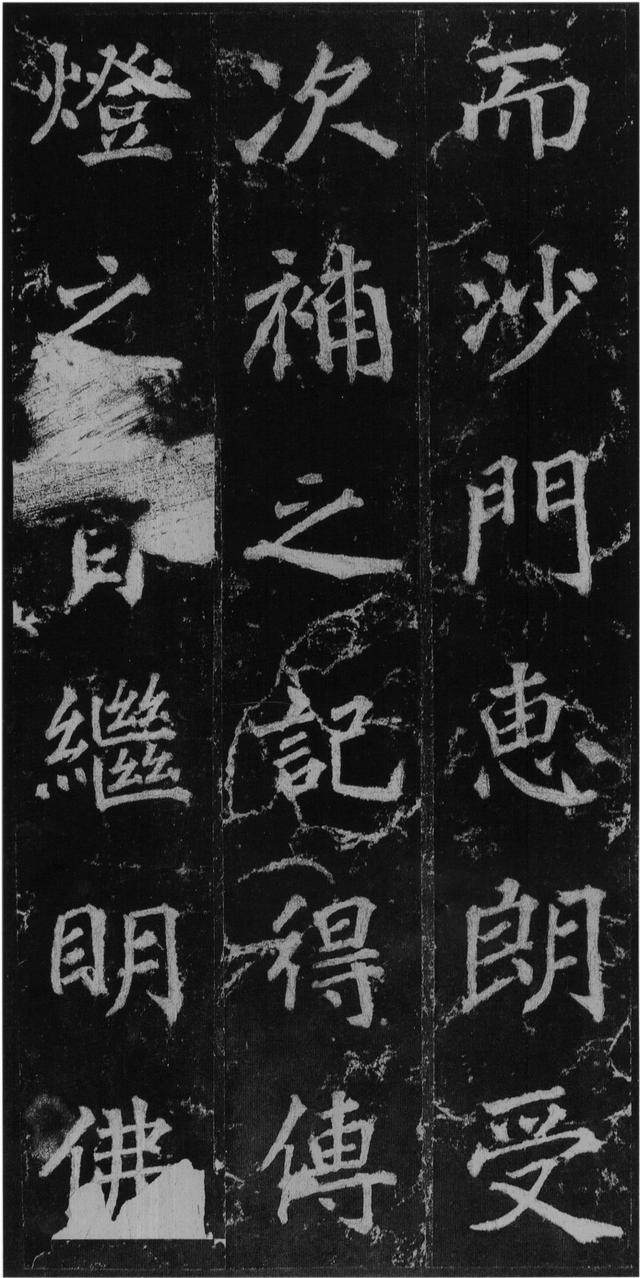 而沙門恵朗受
次補之記得傳
燈之繼明佛